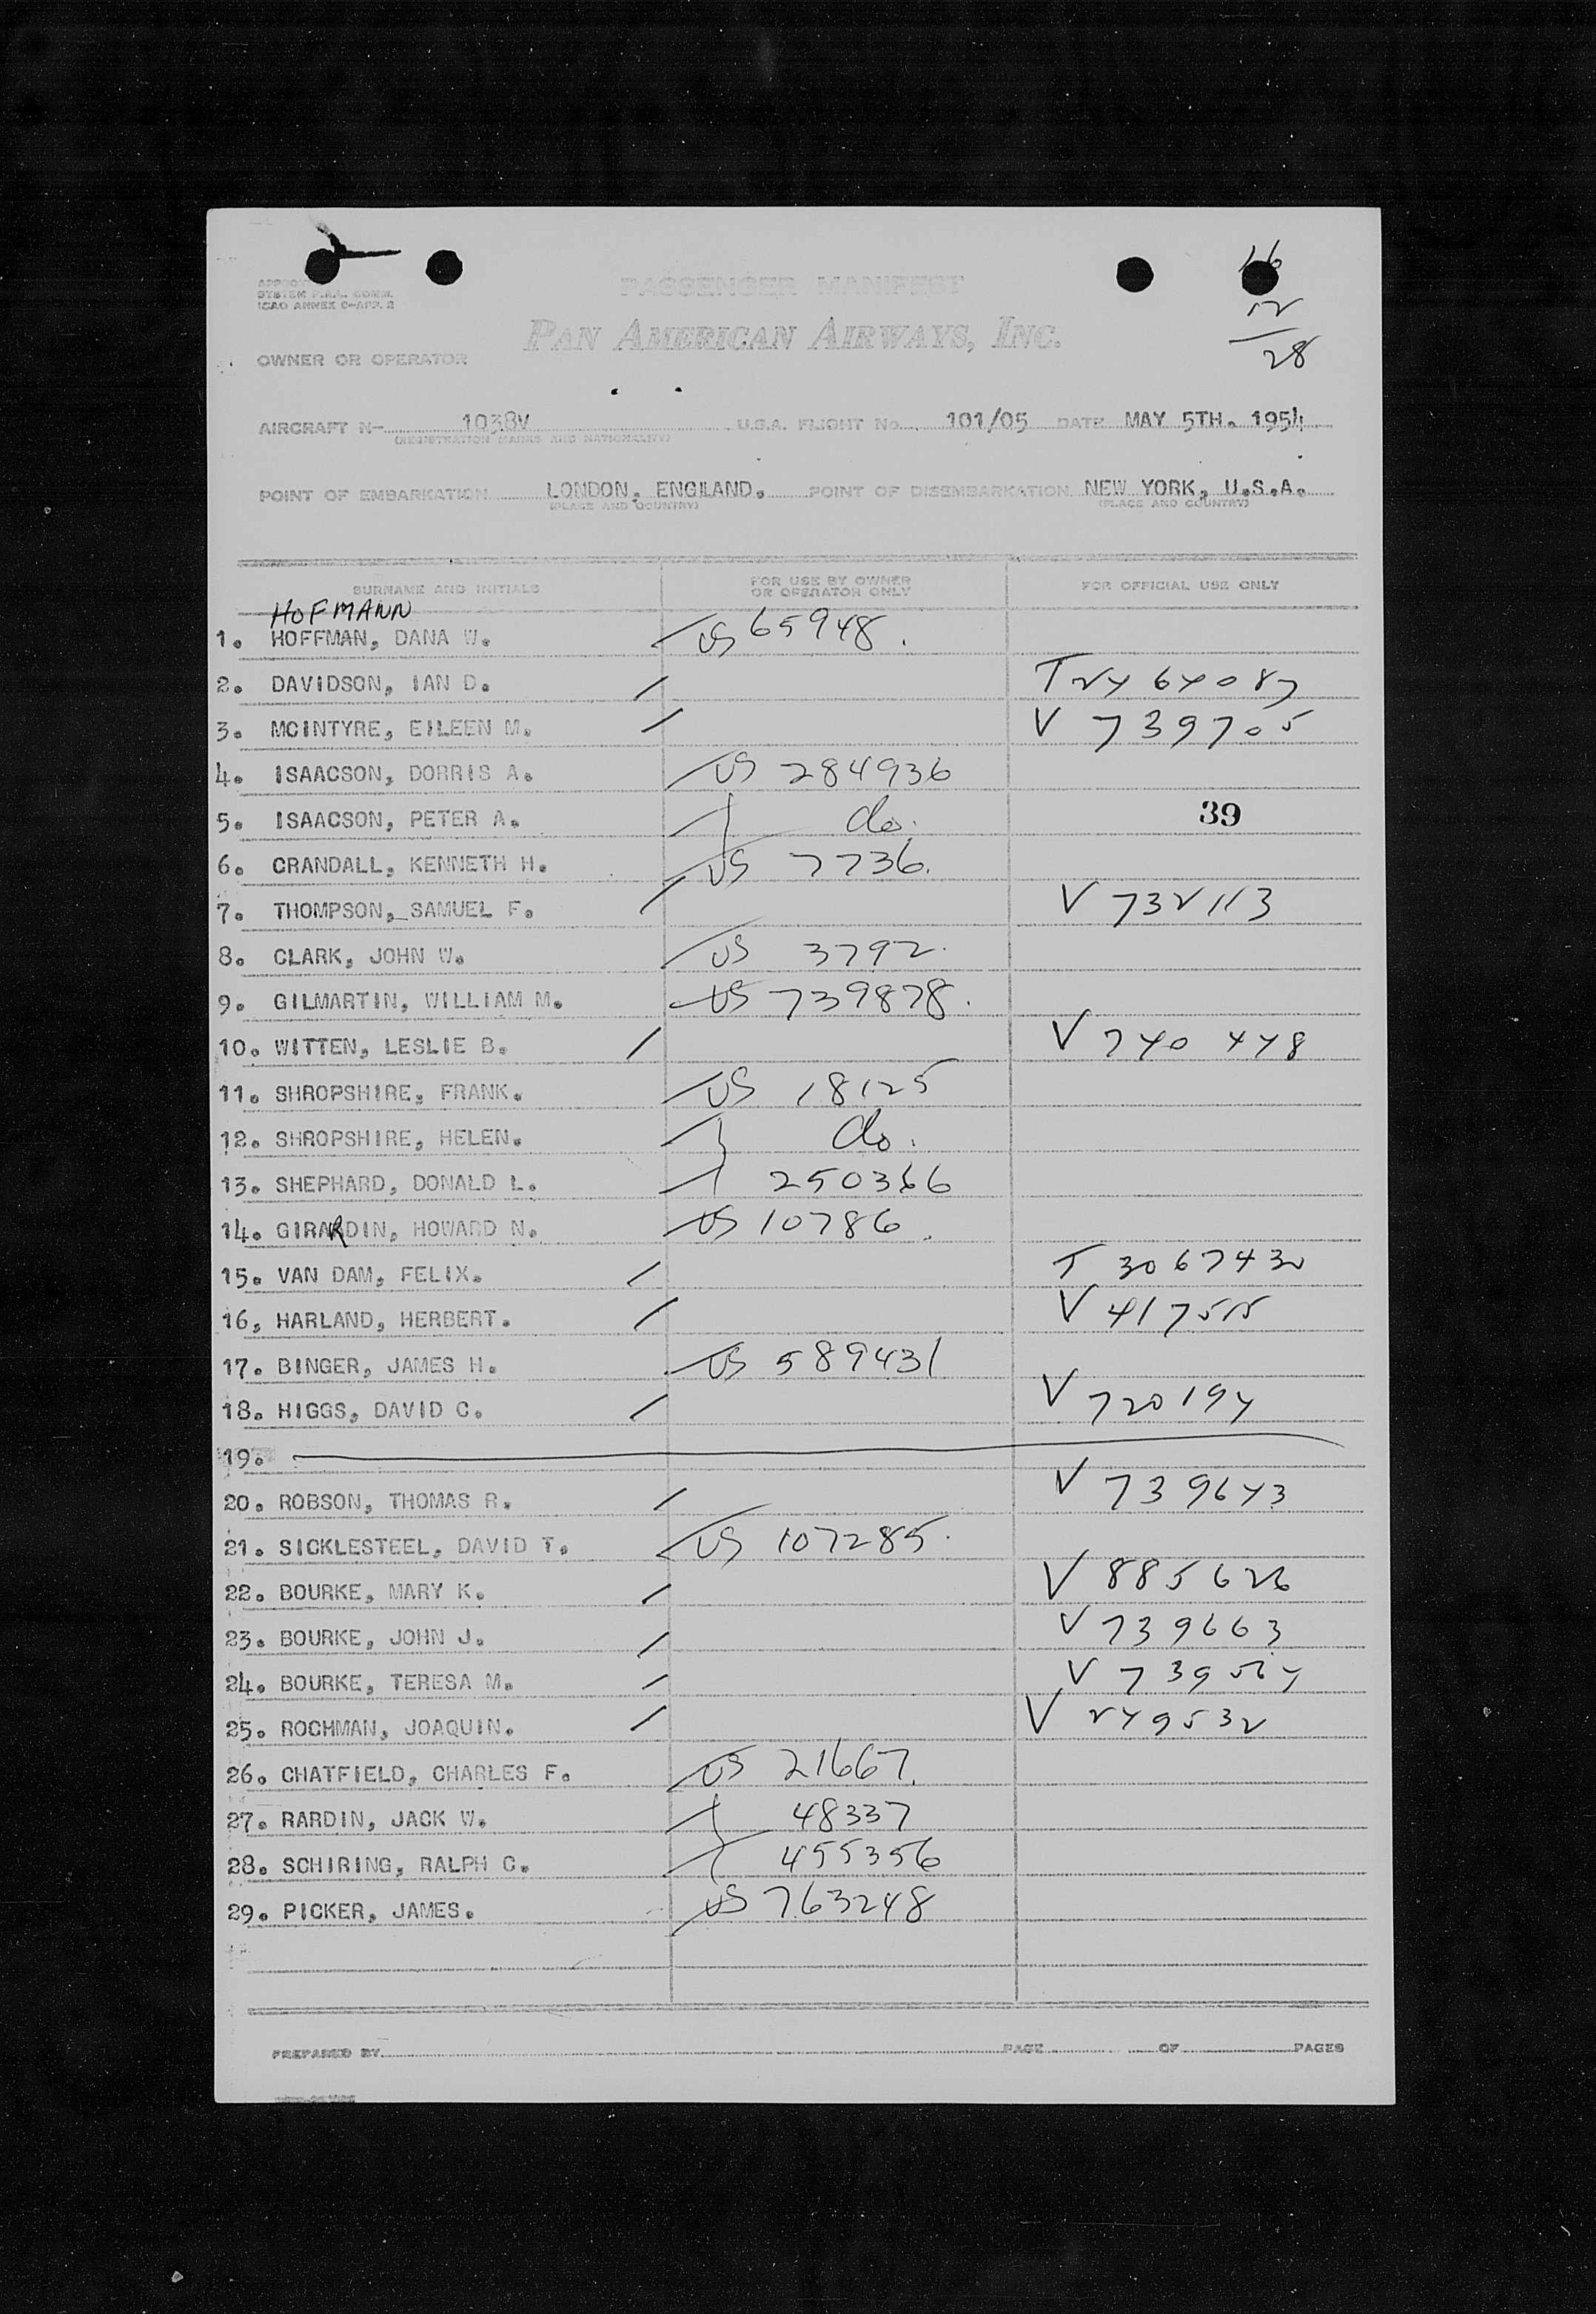 16
12
28
SYSTEM P.A.L. COMM.
ICAO ANNEX 9-APP. 2
PASSENGER MANIFEST
PAN AMERICAN AIRWAYS, INC.
OWNER OR OPERATOR
AIRCRAFT N- 1038V U.S.A. FLIGHT No. 101/05 DATE MAY 5TH. 1954
(REGISTRATION MARKS AND NATIONALITY)
POINT OF EMBARKATION LONDON, ENGLAND. POINT OF DISEMBARKATION NEW YORK, U.S.A.
(PLACE AND COUNTRY) (PLACE AND COUNTRY)
SURNAME AND INITIALS FOR USE BY OWNER OR OPERATOR ONLY FOR OFFICIAL USE ONLY
HOFMANN
1. HOFFMAN, DANA W. US 65948.
2. DAVIDSON, IAN D. T 2464087
3. MCINTYRE, EILEEN M. V 739705
4. ISAACSON, DORRIS A. US 284936
5. ISAACSON, PETER A. do. 39
6. CRANDALL, KENNETH H. US 7736.
7. THOMPSON, SAMUEL F. V 732113
8. CLARK, JOHN W. US 3792.
9. GILMARTIN, WILLIAM M. US 739878.
10. WITTEN, LESLIE B. V 740448
11. SHROPSHIRE, FRANK. US 18125
12. SHROPSHIRE, HELEN. do.
13. SHEPHARD, DONALD L. 250366
14. GIRARDIN, HOWARD N. US 10786.
15. VAN DAM, FELIX. T 3067432
16, HARLAND, HERBERT. V
17. BINGER, JAMES H. US 589431
18. HIGGS, DAVID C. V 720194
19.
20. ROBSON, THOMAS R. V 739643
21. SICKLESTEEL, DAVID T. US 107285.
22. BOURKE, MARY K. V 885626
23. BOURKE, JOHN J. V 739663
24. BOURKE, TERESA M. V
25. ROCHMAN, JOAQUIN. V 249532
26. CHATFIELD, CHARLES F. US 21667.
27. RARDIN, JACK W. 48337
28. SCHIRING, RALPH C. 455356
29. PICKER, JAMES. US 763248
PREPARED BY PAGE OF PAGES